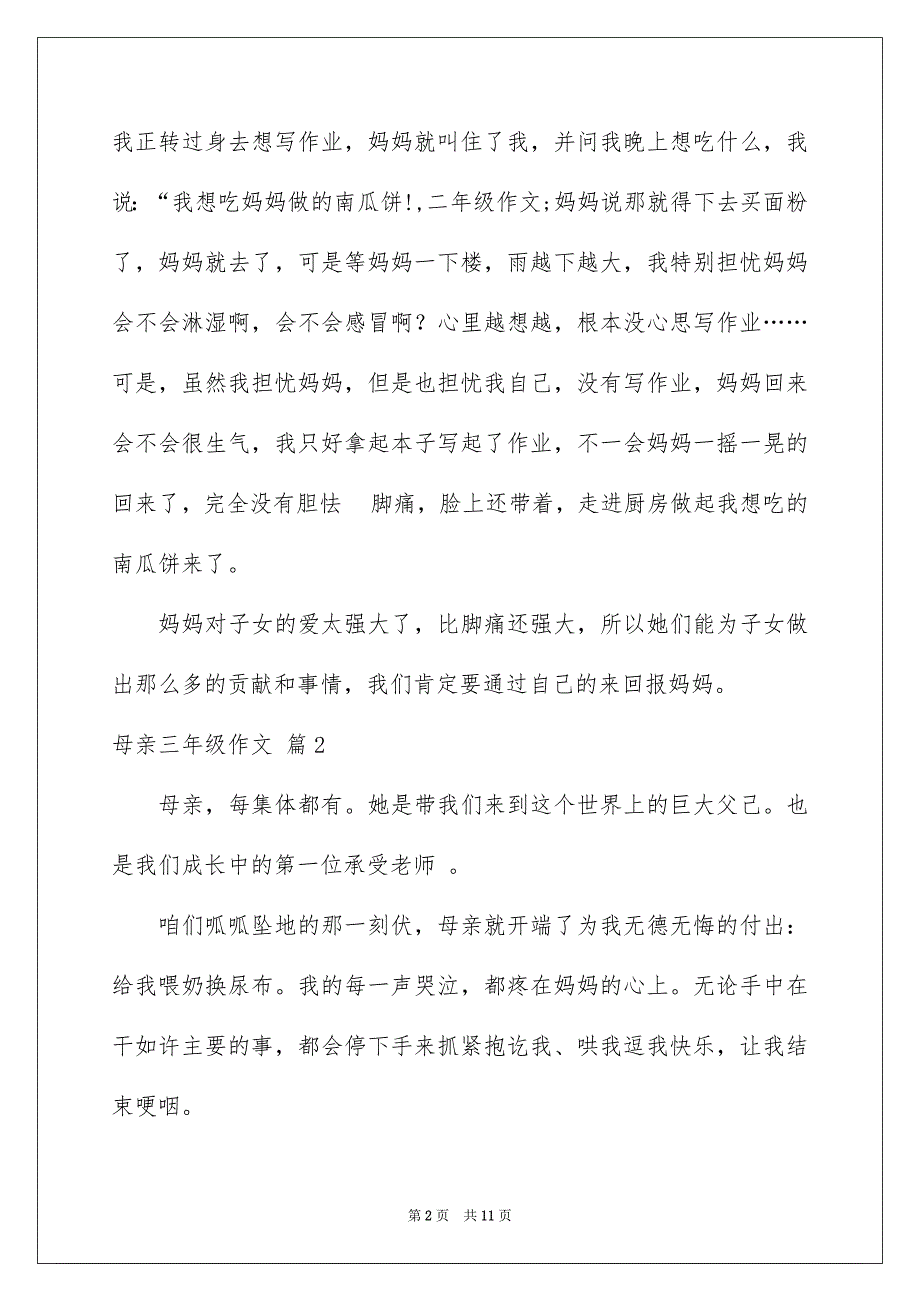 我正转过身去想写作业，妈妈就叫住了我，并问我晚上想吃什么，我
说：“我想吃妈妈做的南瓜饼!,二年级作文;妈妈说那就得下去买面粉
了，妈妈就去了，可是等妈妈一下楼，雨越下越大，我特别担忧妈妈
会不会淋湿啊，会不会感冒啊？心里越想越，根本没心思写作业……
可是，虽然我担忧妈妈，但是也担忧我自己，没有写作业，妈妈回来
会不会很生气，我只好拿起本子写起了作业，不一会妈妈一摇一晃的
回来了，完全没有胆怯　脚痛，脸上还带着，走进厨房做起我想吃的
南瓜饼来了。
妈妈对子女的爱太强大了，比脚痛还强大，所以她们能为子女做
出那么多的贡献和事情，我们肯定要通过自己的来回报妈妈。
母亲三年级作文 篇2
母亲，每集体都有。她是带我们来到这个世界上的巨大父己。也
是我们成长中的第一位承受老师 。
咱们呱呱坠地的那一刻伏，母亲就开端了为我无德无悔的付出：
给我喂奶换尿布。我的每一声哭泣，都疼在妈妈的心上。无论手中在
干如许主要的事，都会停下手来抓紧抱讫我、哄我逗我快乐，让我结
束哽咽。
第 2 页 共 11 页